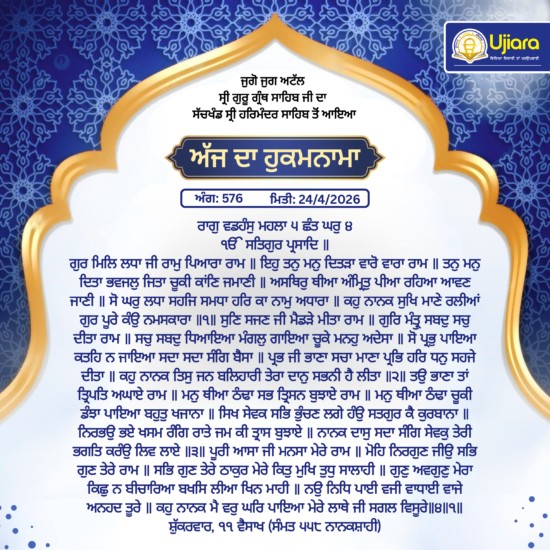 Ujiara
ਜੁਗੋ ਜੁਗ ਅਟੱਲ
ਸ੍ਰੀ ਗੁਰੂ ਗ੍ਰੰਥ ਸਾਹਿਬ ਜੀ ਦਾ
ਸੱਚਖੰਡ ਸ੍ਰੀ ਹਰਿਮੰਦਰ ਸਾਹਿਬ ਤੋਂ ਆਇਆ
ਅੱਜ ਦਾ ਹੁਕਮਨਾਮਾ
ਅੰਗ: 576 ਮਿਤੀ: 24/4/2026
ਰਾਗੁ ਵਡਹੰਸੁ ਮਹਲਾ ੫ ਛੰਤ ਘਰੁ ੪
ੴ ਸਤਿਗੁਰ ਪ੍ਰਸਾਦਿ ॥
ਗੁਰ ਮਿਲਿ ਲਧਾ ਜੀ ਰਾਮੁ ਪਿਆਰਾ ਰਾਮ ॥ ਇਹੁ ਤਨੁ ਮਨੁ ਦਿਤੜਾ ਵਾਰੋ ਵਾਰਾ ਰਾਮ ॥ ਤਨੁ ਮਨੁ
ਦਿਤਾ ਭਵਜਲੁ ਜਿਤਾ ਚੂਕੀ ਕਾਂਣਿ ਜਮਾਣੀ ॥ ਅਸਥਿਰੁ ਥੀਆ ਅੰਮ੍ਰਿਤੁ ਪੀਆ ਰਹਿਆ ਆਵਣ
ਜਾਣੀ ॥ ਸੋ ਘਰੁ ਲਧਾ ਸਹਜਿ ਸਮਧਾ ਹਰਿ ਕਾ ਨਾਮੁ ਅਧਾਰਾ ॥ ਕਹੁ ਨਾਨਕ ਸੁਖਿ ਮਾਣੇ ਰਲੀਆਂ
ਗੁਰ ਪੂਰੇ ਕੰਉ ਨਮਸਕਾਰਾ ॥੧॥ ਸੁਣਿ ਸਜਣ ਜੀ ਮੈਡੜੇ ਮੀਤਾ ਰਾਮ ॥ ਗੁਰਿ ਮੰਤ੍ਰੁ ਸਬਦੁ ਸਚੁ
ਦੀਤਾ ਰਾਮ ॥ ਸਚੁ ਸਬਦੁ ਧਿਆਇਆ ਮੰਗਲੁ ਗਾਇਆ ਚੂਕੇ ਮਨਹੁ ਅਦੇਸਾ ॥ ਸੋ ਪ੍ਰਭੁ ਪਾਇਆ
ਕਤਹਿ ਨ ਜਾਇਆ ਸਦਾ ਸਦਾ ਸੰਗਿ ਬੈਸਾ ॥ ਪ੍ਰਭ ਜੀ ਭਾਣਾ ਸਚਾ ਮਾਣਾ ਪ੍ਰਭਿ ਹਰਿ ਧਨੁ ਸਹਜੇ
ਦੀਤਾ ॥ ਕਹੁ ਨਾਨਕ ਤਿਸੁ ਜਨ ਬਲਿਹਾਰੀ ਤੇਰਾ ਦਾਨੁ ਸਭਨੀ ਹੈ ਲੀਤਾ ॥੨॥ ਤਉ ਭਾਣਾ ਤਾਂ
ਤ੍ਰਿਪਤਿ ਅਘਾਏ ਰਾਮ ॥ ਮਨੁ ਥੀਆ ਠੰਢਾ ਸਭ ਤ੍ਰਿਸਨ ਬੁਝਾਏ ਰਾਮ ॥ ਮਨੁ ਥੀਆ ਠੰਢਾ ਚੂਕੀ
ਡੰਝਾ ਪਾਇਆ ਬਹੁਤੁ ਖਜਾਨਾ ॥ ਸਿਖ ਸੇਵਕ ਸਭਿ ਭੁੰਚਣ ਲਗੇ ਹੰਉ ਸਤਗੁਰ ਕੈ ਕੁਰਬਾਨਾ ॥
ਨਿਰਭਉ ਭਏ ਖਸਮ ਰੰਗਿ ਰਾਤੇ ਜਮ ਕੀ ਤ੍ਰਾਸ ਬੁਝਾਏ ॥ ਨਾਨਕ ਦਾਸੁ ਸਦਾ ਸੰਗਿ ਸੇਵਕੁ ਤੇਰੀ
ਭਗਤਿ ਕਰੰਉ ਲਿਵ ਲਾਏ ॥੩॥ ਪੂਰੀ ਆਸਾ ਜੀ ਮਨਸਾ ਮੇਰੇ ਰਾਮ ॥ ਮੋਹਿ ਨਿਰਗੁਣ ਜੀਉ ਸਭਿ
ਗੁਣ ਤੇਰੇ ਰਾਮ ॥ ਸਭਿ ਗੁਣ ਤੇਰੇ ਠਾਕੁਰ ਮੇਰੇ ਕਿਤੁ ਮੁਖਿ ਤੁਧੁ ਸਾਲਾਹੀ ॥ ਗੁਣੁ ਅਵਗੁਣੁ ਮੇਰਾ
ਕਿਛੁ ਨ ਬੀਚਾਰਿਆ ਬਖਸਿ ਲੀਆ ਖਿਨ ਮਾਹੀ ॥ ਨਉ ਨਿਧਿ ਪਾਈ ਵਜੀ ਵਾਧਾਈ ਵਾਜੇ
ਅਨਹਦ ਤੂਰੇ ॥ ਕਹੁ ਨਾਨਕ ਮੈ ਵਰੁ ਘਰਿ ਪਾਇਆ ਮੇਰੇ ਲਾਥੇ ਜੀ ਸਗਲ ਵਿਸੂਰੇ॥੪॥੧॥
ਸ਼ੁੱਕਰਵਾਰ, ੧੧ ਵੈਸਾਖ (ਸੰਮਤ ੫੫੮ ਨਾਨਕਸ਼ਾਹੀ)